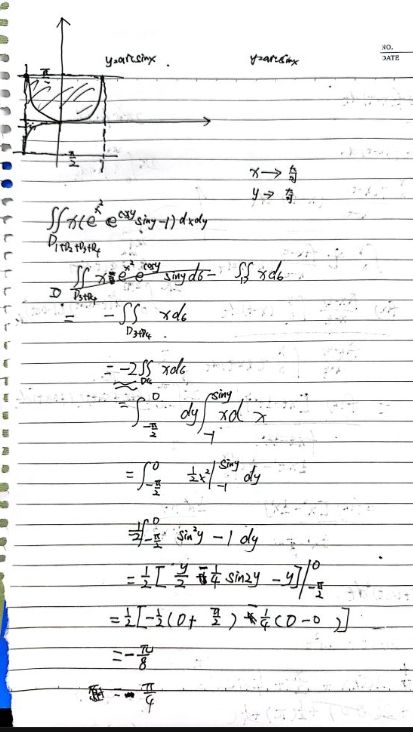 y=arcsinx y=arcsinx
NO.
DATE
π/2
π/2
x → π/2
y → π/2
∬ x(e^{x²} e^{cosy} siny -1) dxdy
D₁+D₂+D₃+D₄
∬ x e^{x²} e^{cosy} siny dσ - ∬ x dσ
D D₃+D₄ D
= - ∬ x dσ
D₃+D₄
= -2∬ x dσ
D₄
= ∫_{-π/2}^{0} dy ∫_{-1}^{siny} x d x
= ∫_{-π/2}^{0} ½x² |_{-1}^{siny} dy
= ½∫_{-π/2}^{0} sin²y - 1 dy
= ½[ y/2 - ¼ sin2y - y ] |_{-π/2}^{0}
= ½[ -½(0 + π/2) - ¼(0-0) ]
= - π/8
= - π/4